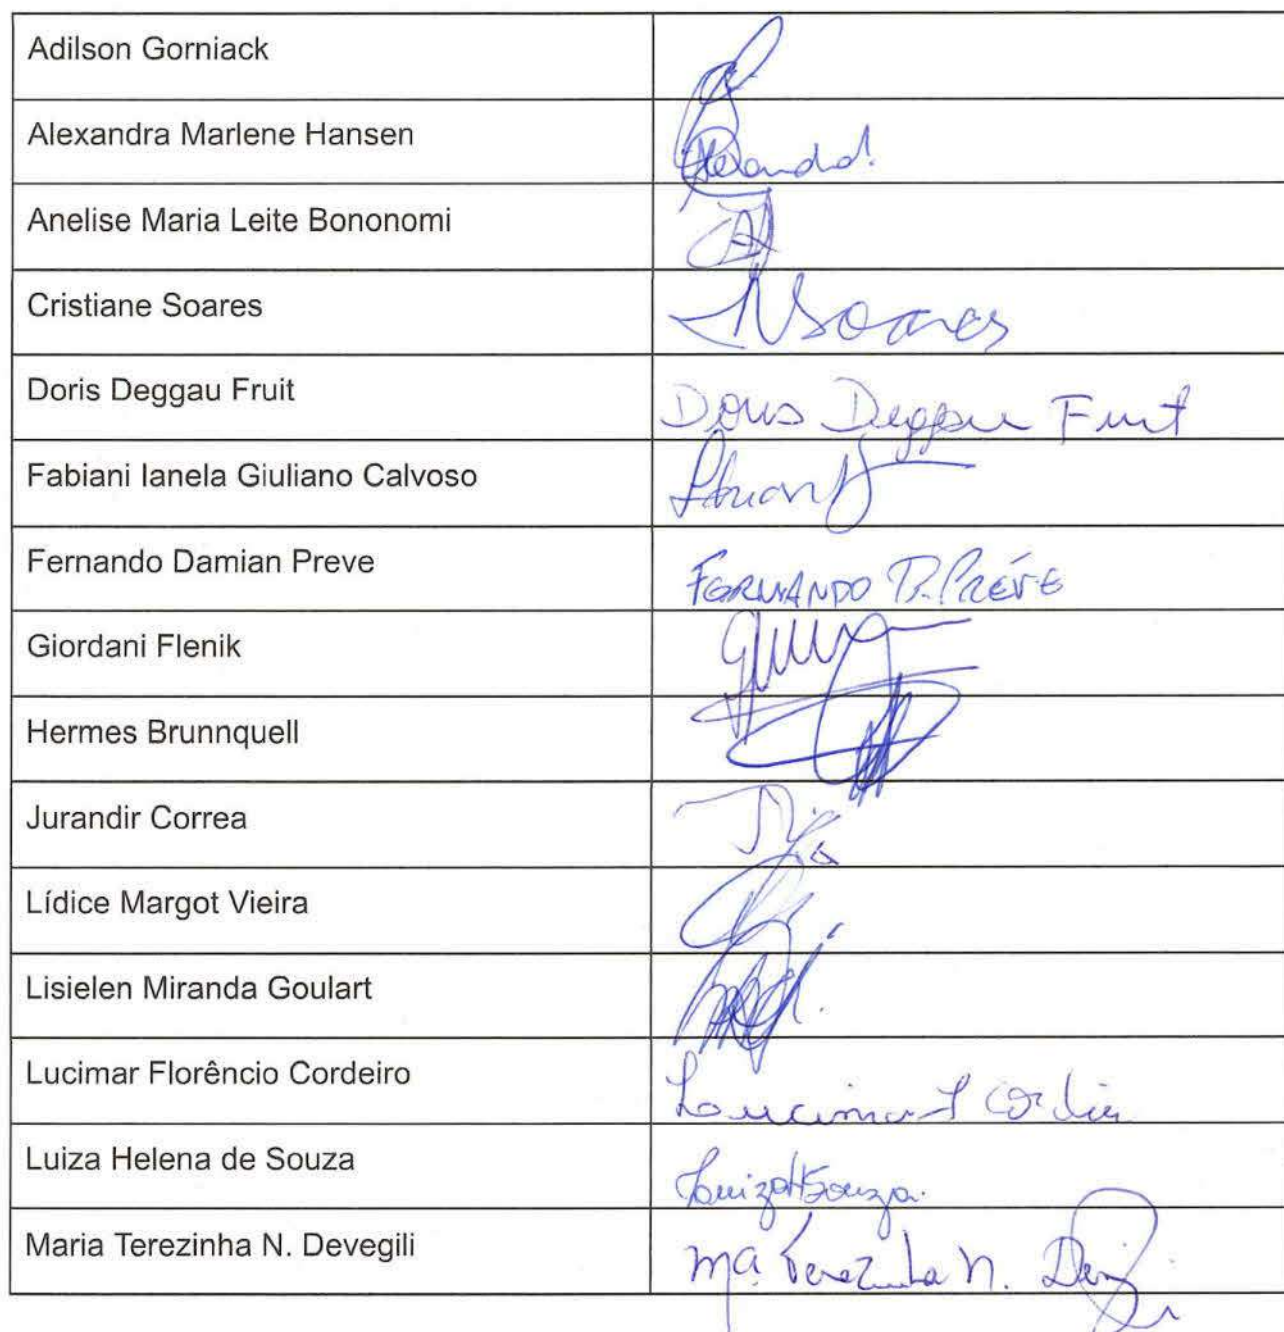 Adilson Gorniack
Alexandra Marlene Hansen
Anelise Maria Leite Bononomi
Cristiane Soares
Soares
Doris Deggau Fruit
Doris Deggau Fruit
Fabiani Ianela Giuliano Calvoso
Fernando Damian Preve
FERNANDO D. PRÉVE
Giordani Flenik
Hermes Brunnquell
Jurandir Correa
Lídice Margot Vieira
Lisielen Miranda Goulart
Lucimar Florêncio Cordeiro
Luiza Helena de Souza
LuizaHSouza.
Maria Terezinha N. Devegili
Mª. Terezinha N.